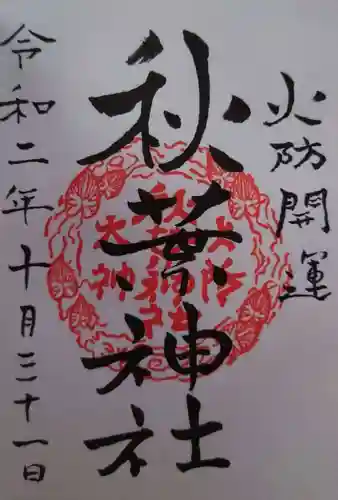 火防開運
秋葉神社
令和二年十月三十一日